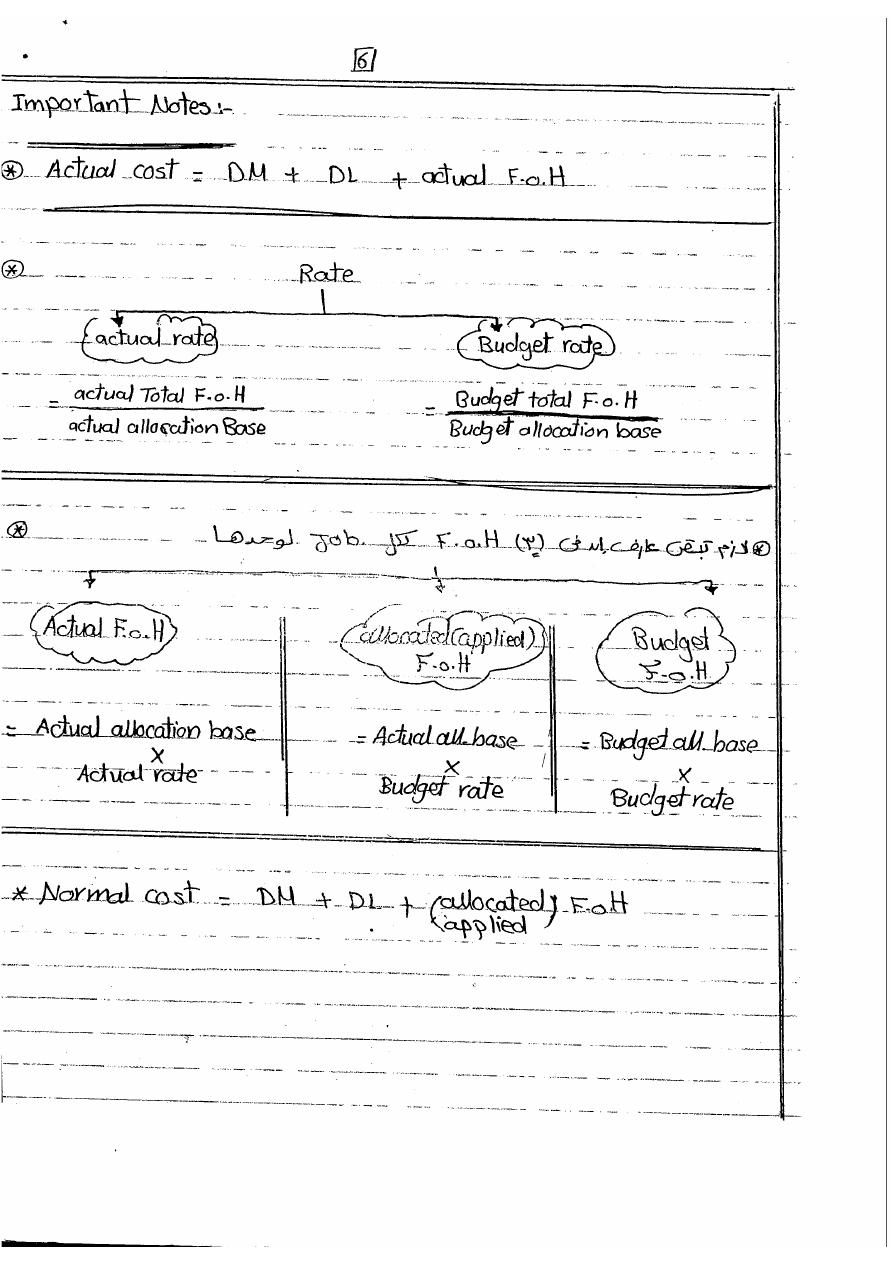 6
Important Notes:-
* Actual cost = DM + DL + actual F.o.H
* Rate
actual rate
= actual Total F.o.H
actual allocation Base
Budget rate
= Budget total F.o.H
Budget allocation base
* لازم تبقى عارف (٣) F.o.H لكل Job لوحدها
Actual F.o.H
= Actual allocation base
X
Actual rate
allocated (applied)
F.o.H
= Actual all base
X
Budget rate
Budget
F.o.H
= Budget all base
X
Budget rate
* Normal cost = DM + DL + (allocated) F.o.H
(applied